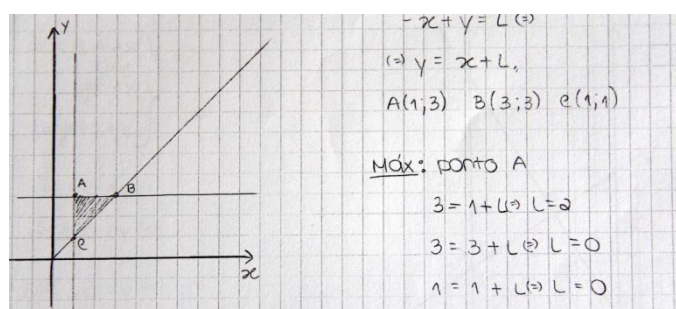 y
A
B
C
x
-x+y=L(=)
(=) y = x+L,
A(1;3) B(3;3) C(1;1)
Máx: ponto A
3=1+L(=) L=2
3=3+L(=) L=0
1=1+L(=) L=0